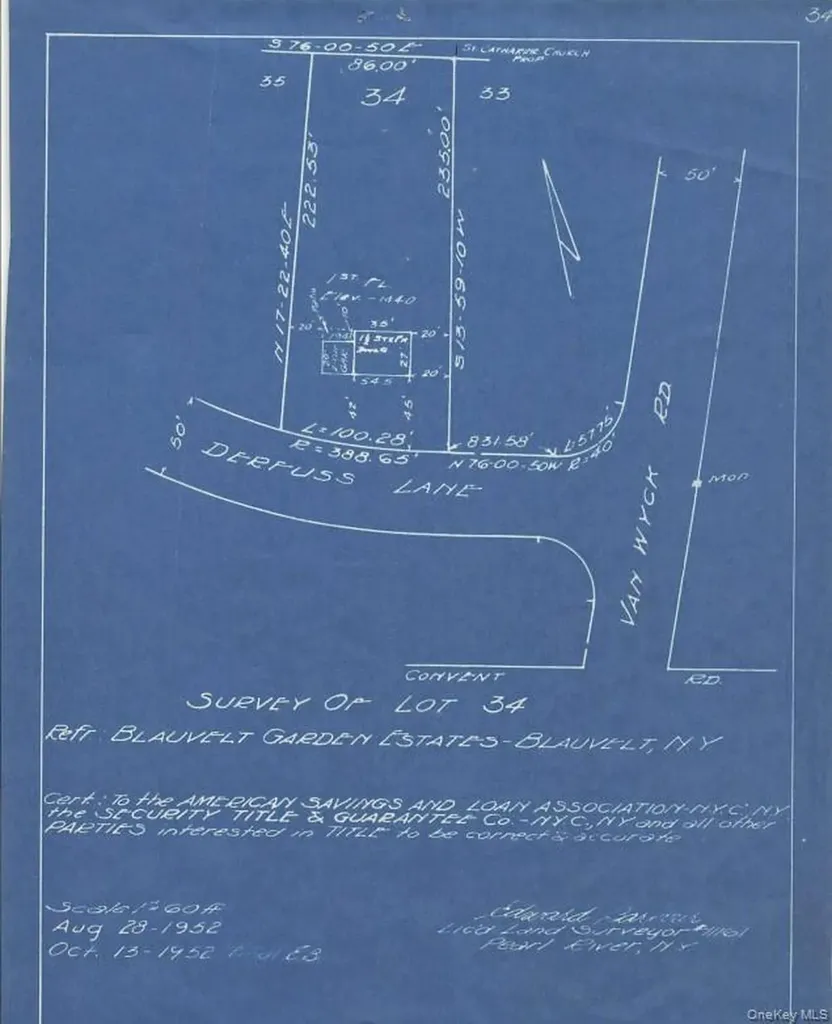 34
S 76-00-50 E
ST. CATHARINE CHURCH
PROP
86.00'
35
34
33
222.53'
235.00'
50'
N 17-22-40 E
S 13-59-10 W
1ST. FL
ELEV. - 144.0
20'
35'
20'
1½ STY FR
27'
GAR
54.5
20'
42'
45'
L=100.28'
R=388.65'
831.58'
N 76-00-50W
L=57.75'
R=40'
50'
DERFUSS LANE
VAN WYCK RD
MON
CONVENT RD.
SURVEY OF LOT 34
Refr: BLAUVELT GARDEN ESTATES-BLAUVELT, N.Y
Cert.: To the AMERICAN SAVINGS AND LOAN ASSOCIATION-N.Y.C., NY
the SECURITY TITLE & GUARANTEE Co.-N.Y.C., NY and all other
PARTIES interested in TITLE to be correct & accurate
Scale 1"=60ft
Aug 28-1952
Oct. 13-1952
Edward
Lic'd Land Surveyor
Pearl River, N.Y.
OneKey MLS